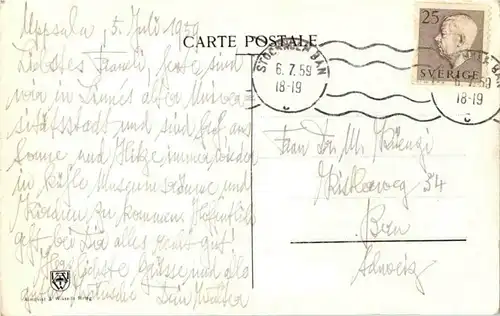 Uppsala, 5. Juli 1959
Liebstes Franeli, heute sind
wir in Linnes alter Univer-
sitätsstadt und sind froh aus
Sonne und Hitze immer wieder
in kühle Museumsräume und
Kirchen zu kommen. Hoffentlich
geht bei Dir alles recht gut!
Herzlichste Grüsse und alle
guten Wünsche Dein Walter
CARTE POSTALE
STOCKHOLM BAN
6.7.59
18-19
25
SVERIGE
6.7.59
18-19
Frau Dr. W.
34
Bern
Schweiz